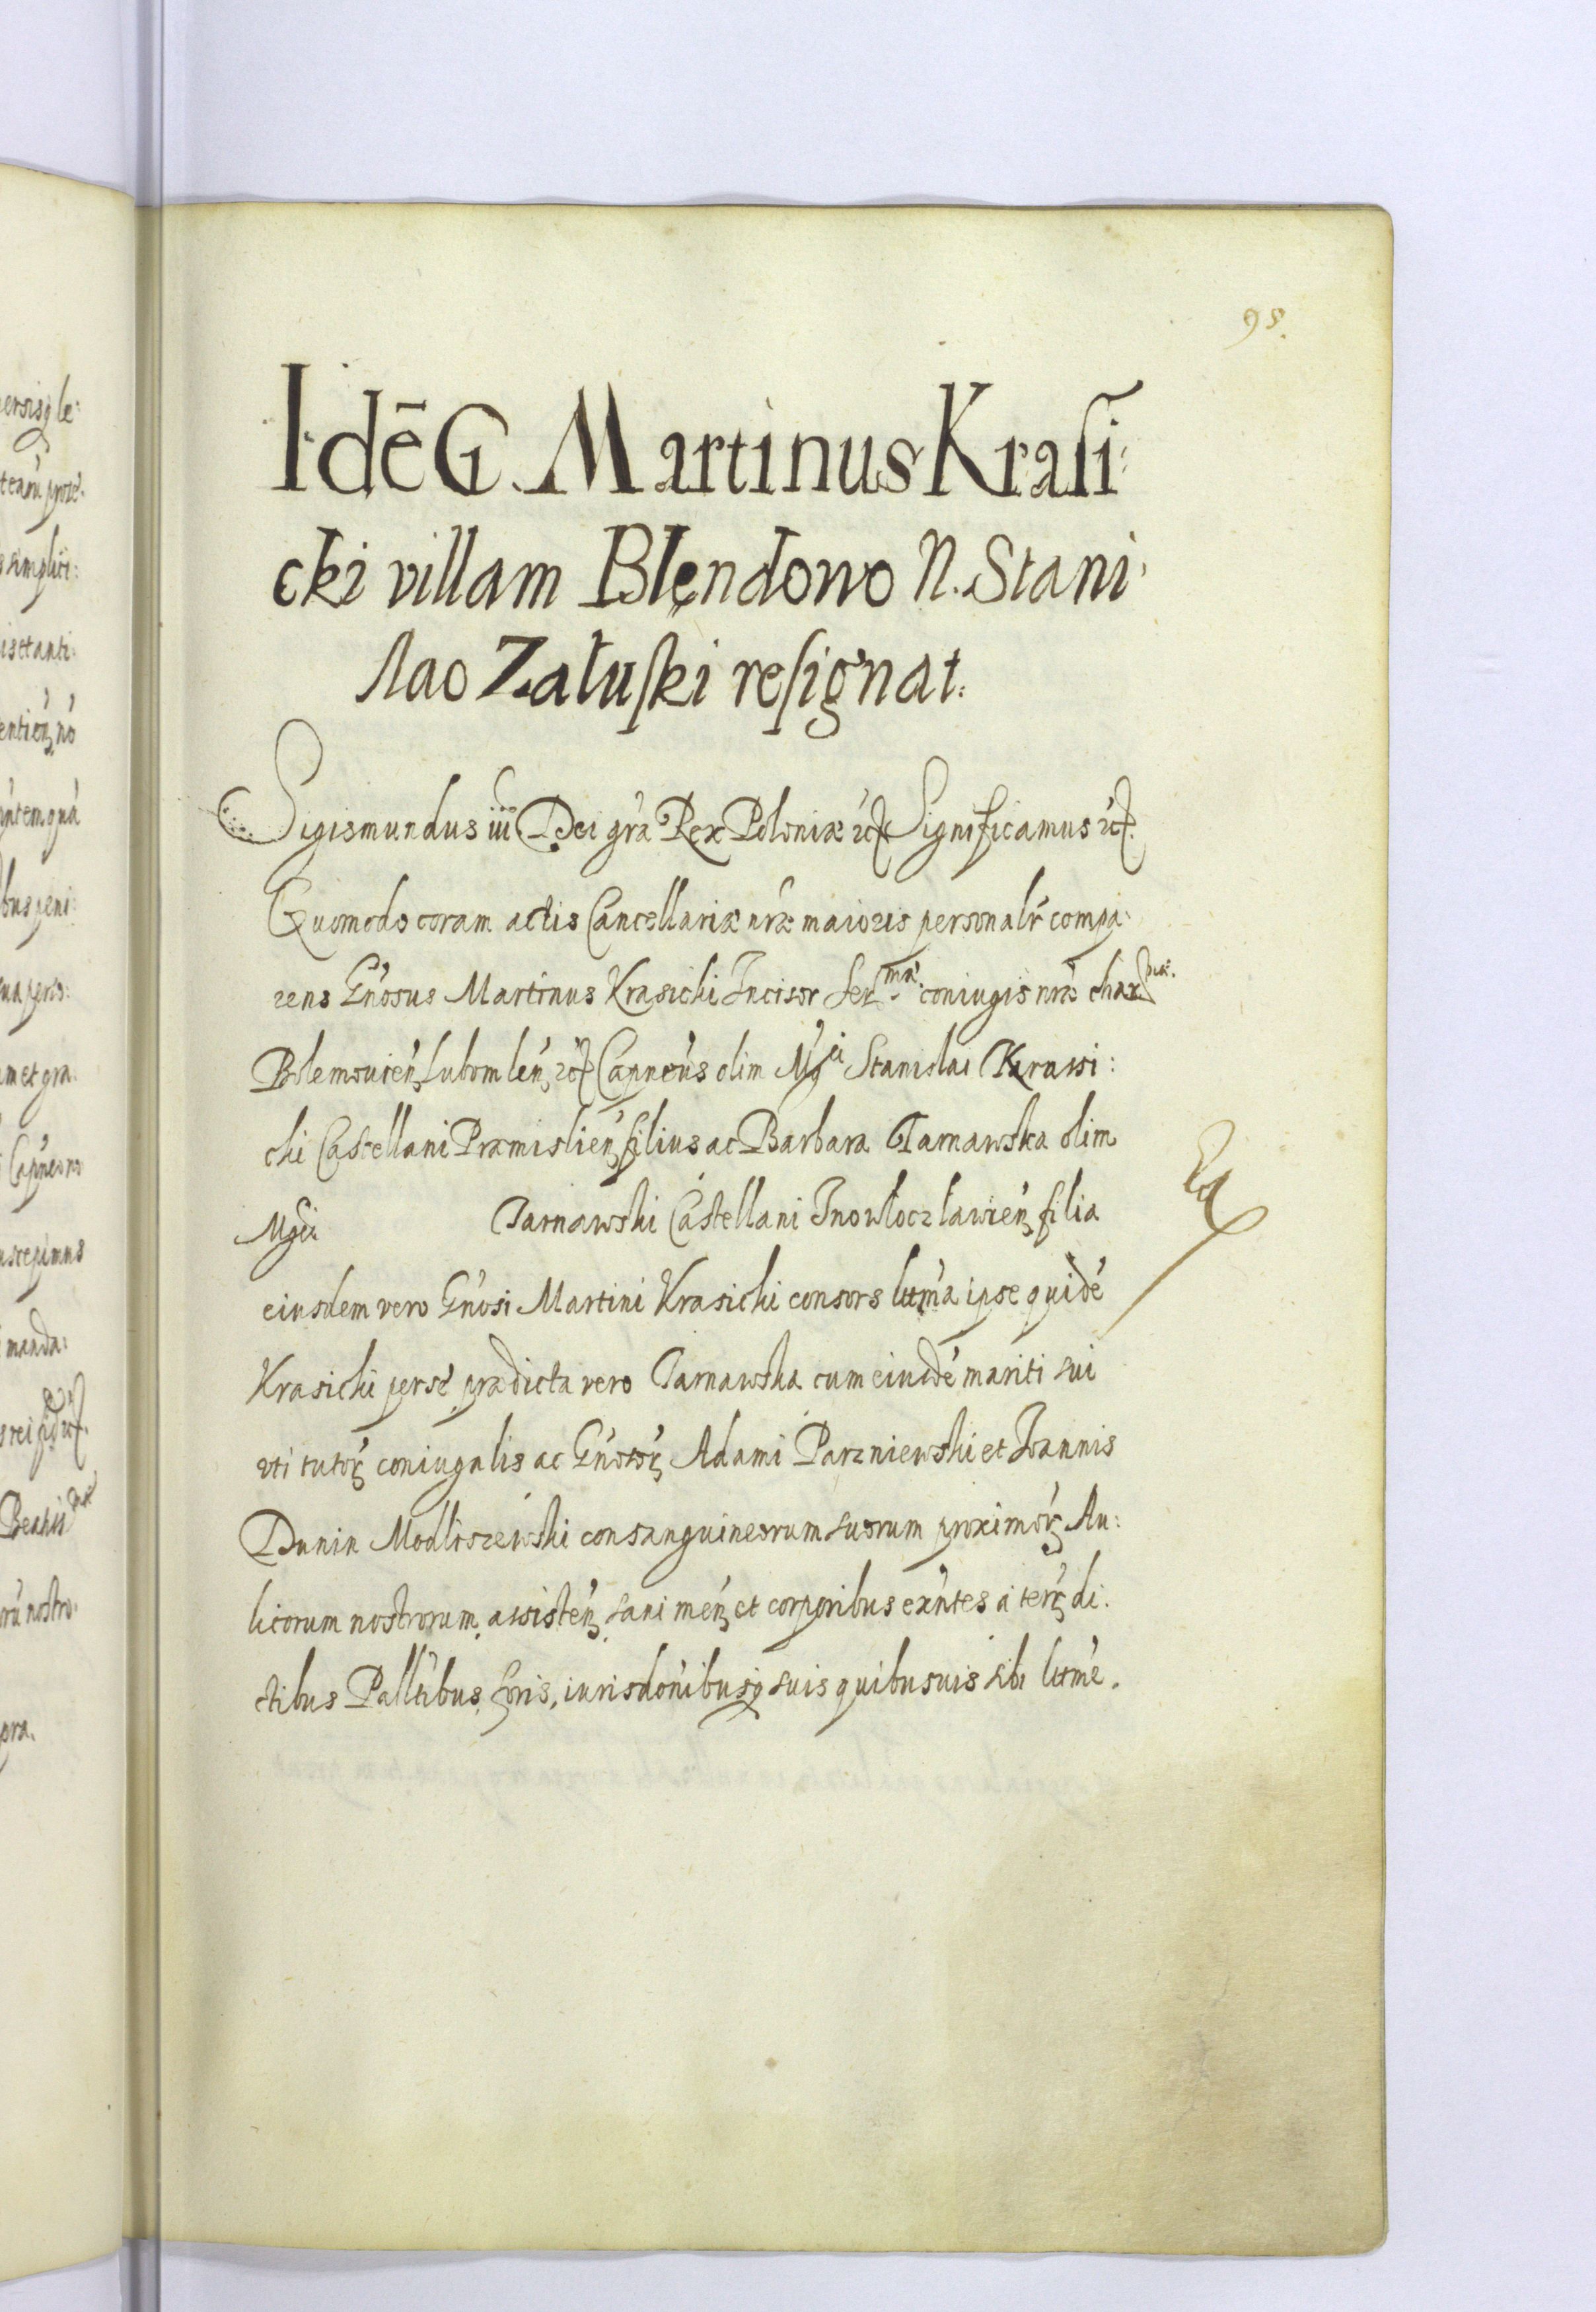 95.
Idē G. Martinus Krasi:
cki villam Blendowo N. Stani:
slao Załuski resignat.
Sigismundus iii Dei gra Rex Poloniæ etc Significamus etc.
Quomodo coram actis Cancellariæ nræ maioris personalr compa:
rens Gnosus Martinus Krasicki Incisor Ser mæ coniugis nræ char
Bolemouien Lubomlen etc Capneus olim Mgci Stanislai Krassi:
cki Castellani Præmislien filius ac Barbara Tarnawska olim
Mgci Tarnawski Castellani Inowloczlawien filia
eiusdem vero Gnosi Martini Krasicki consors lttma ipse quidé
Krasicki per sé prædicta vero Tarnawska cum eiusdé mariti sui
uti tutoris coniugalis ac Gnosor Adami Parzniewski et Joannis
Dunin Modliszewski consanguineorum suorum proximor Au:
licorum nostrorum assisten sani men et corporibus exntes a ter di:
ctibus Palltibus, foris, iurisdonibusq suis quibusuis sibi lttme.